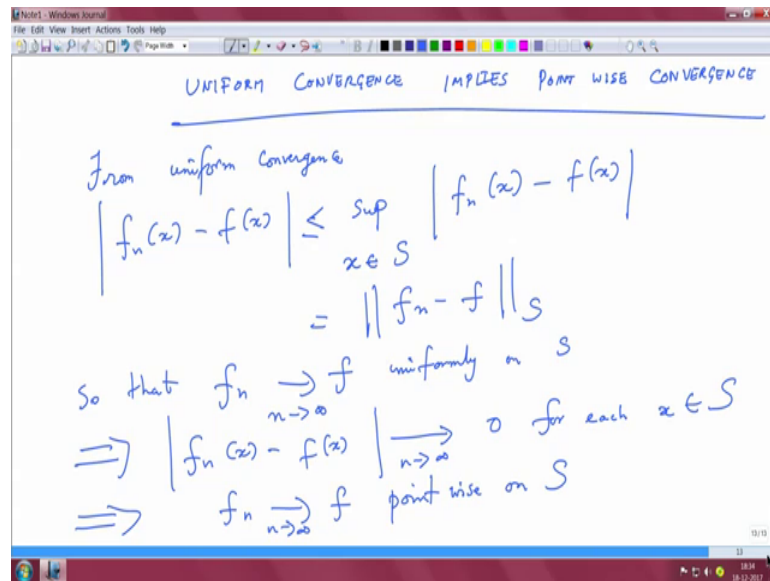 Note1 - Windows Journal
File Edit View Insert Actions Tools Help
Page Width
UNIFORM CONVERGENCE IMPLIES POINT WISE CONVERGENCE
From uniform convergence
| f_n (x) - f(x) | ≤ sup | f_n (x) - f(x) |
x ∈ S
= || f_n - f ||_S
So that f_n → f uniformly on S
n→∞
⟹ | f_n (x) - f(x) | → 0 for each x ∈ S
n→∞
⟹ f_n → f point wise on S
n→∞
13/13
13
18:34
18-12-2017